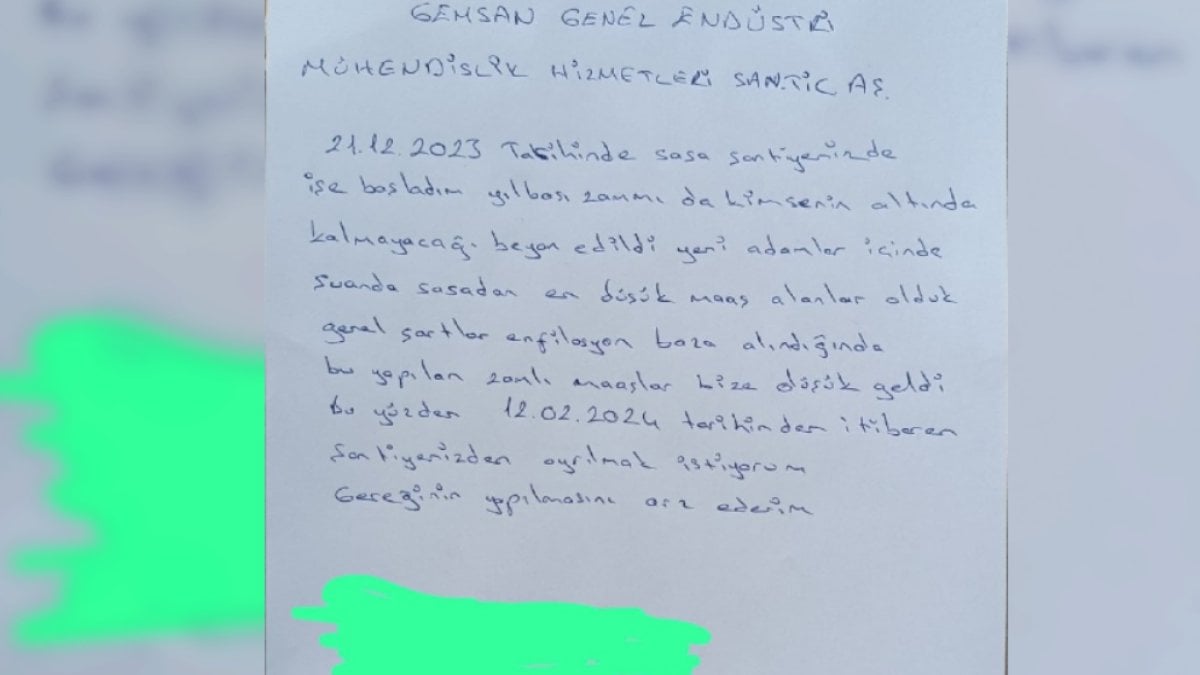 GEMSAN GENEL ENDÜSTRİ
MÜHENDİSLİK HİZMETLERİ SAN.TİC AŞ.
21.12.2023 Tarihinde sasa şantiyenizde
işe başladım yılbaşı zammı da kimsenin altında
kalmayacağı beyan edildi yeni adamlar içinde
şuanda sasadan en düşük maaş alanlar olduk
genel şartlar enfilasyon baza alındığında
bu yapılan zamlı maaşlar bize düşük geldi
Bu yüzden 12.02.2024 tarihinden itiberen
Şantiyenizden ayrılmak istiyorum
Gereğinin yapılmasını arz ederim